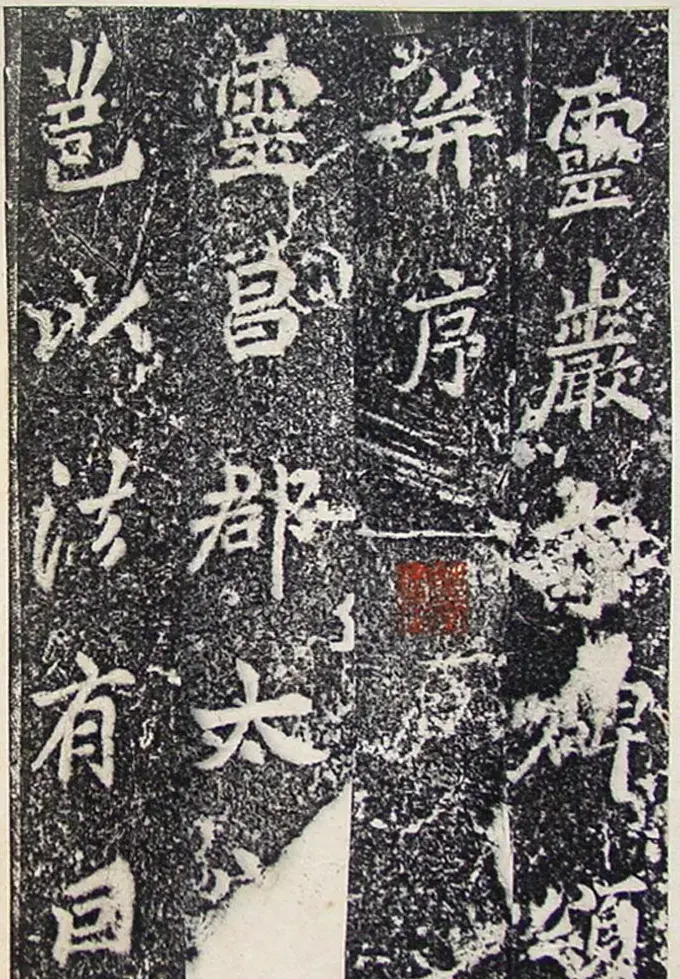 靈巖碑頌
并序
靈昌郡太
邕以法有因